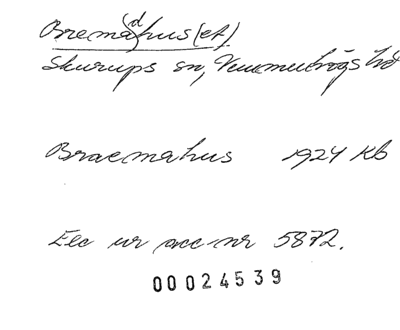 Bremå(d)hus(et).
Skurups sn, Vemmenhögs hd
Braemahus 1924 Kb
Exc ur acc nr 5872.
00024539